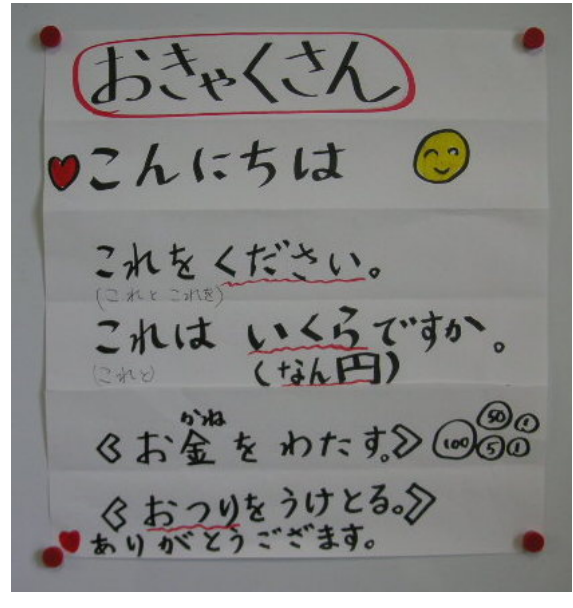 おきゃくさん
こんにちは
これをください。
(これと これを)
これは いくらですか。
(これと) (なん円)
かね
《お金をわたす。》 100 50 1 5 1
《おつりをうけとる。》
ありがとうござます。